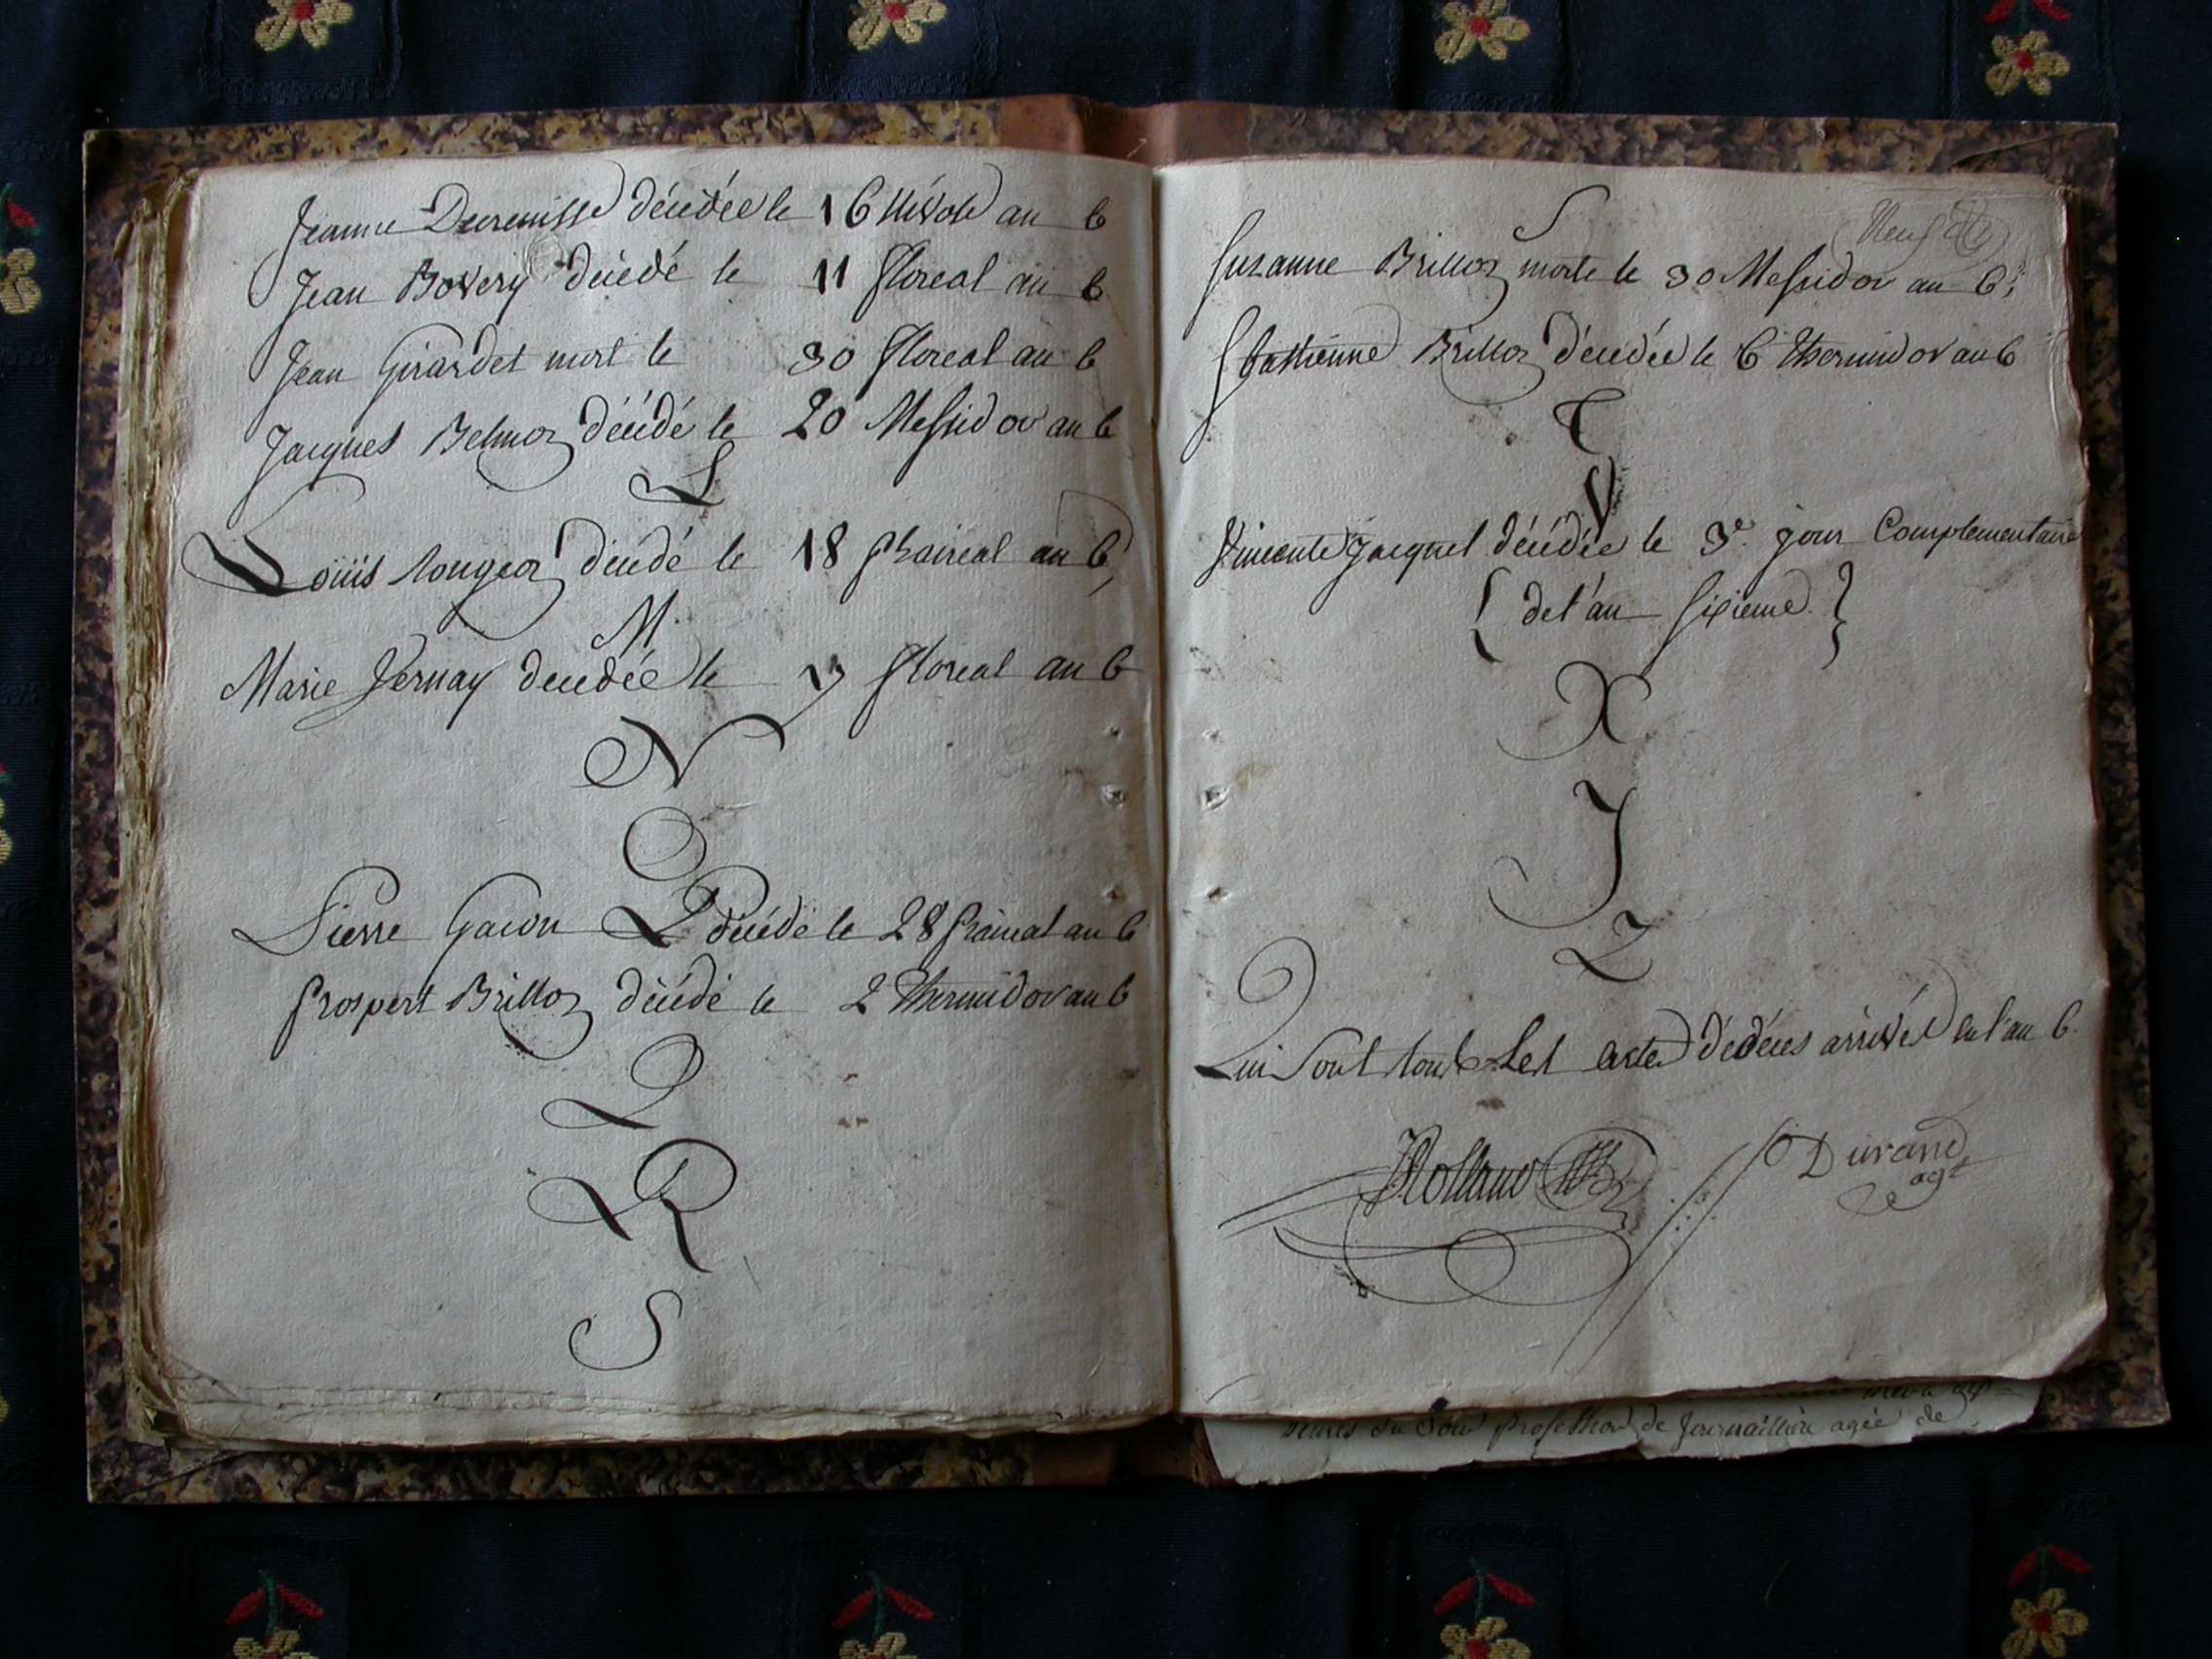 Jeanne Decrenisse décédée le 16 Nivose an 6
Jean Bovery décédé le 11 floreal an 6
Jean Girardet mort le 30 floreal an 6
Jacques Belmon décédé le 20 Messidor an 6
L
Louis longeon décédé le 18 praireal an 6
M.
Marie Vernay decedée le floreal an 6
N
O
P
Pierre Gacon décédé le 28 praireal an 6
prospert Brillon décédé le 2 thermidor an 6
Q
R
S
S
Suzanne Brillon morte le 30 Messidor an 6
Ebastienne Brillon décédée le 6 thermidor an 6
T
V
Vincente Jacquet décédée le 3e. jour Complementaire
{ de l'an sixieme }
X
Y
Z
Qui sont tous Les actes dédéces arrivés en l'an 6.
Rolland
Durand
agt
heures du Soir profession de Journaillière agée de